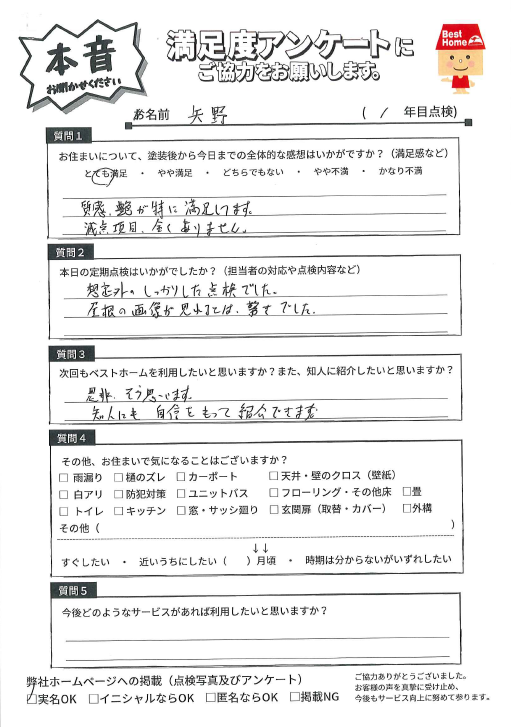 本音
お聞かせください
満足度アンケートに
ご協力をお願いします。
Best
Home
お名前 矢野 ( 1 年目点検)
質問1
お住まいについて、塗装後から今日までの全体的な感想はいかがですか？（満足感など）
とても満足 ・ やや満足 ・ どちらでもない ・ やや不満 ・ かなり不満
質感、艶が特に満足してます。
減点項目、全くありません。
質問2
本日の定期点検はいかがでしたか？（担当者の対応や点検内容など）
想定外のしっかりした点検でした。
屋根の画像が見れるとは、驚きでした。
質問3
次回もベストホームを利用したいと思いますか？また、知人に紹介したいと思いますか？
是非、そう思います。
知人にも 自信をもって紹介できます
質問4
その他、お住まいで気になることはございますか？
□ 雨漏り □ 樋のズレ □ カーポート □ 天井・壁のクロス（壁紙）
□ 白アリ □ 防犯対策 □ ユニットバス □ フローリング・その他床 □畳
□ トイレ □ キッチン □ 窓・サッシ廻り □ 玄関扉（取替・カバー） □外構
その他（ ）
↓↓
すぐしたい ・ 近いうちにしたい（ ）月頃 ・ 時期は分からないがいずれしたい
質問5
今後どのようなサービスがあれば利用したいと思いますか？
弊社ホームページへの掲載（点検写真及びアンケート）
□実名OK □イニシャルならOK □匿名ならOK □掲載NG
ご協力ありがとうございました。
お客様の声を真摯に受け止め、
今後もサービス向上に努めて参ります。